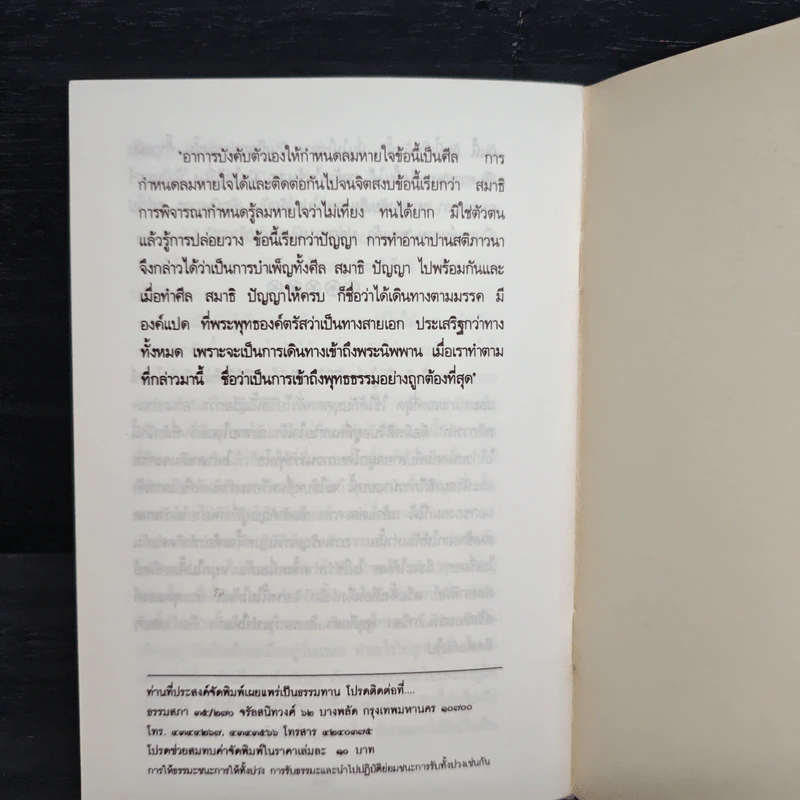 "อาการบังคับตัวเองให้กำหนดลมหายใจข้อนี้เป็นศีล การ
กำหนดลมหายใจได้และติดต่อกันไปจนจิตสงบข้อนี้เรียกว่า สมาธิ
การพิจารณากำหนดรู้ลมหายใจว่าไม่เที่ยง ทนได้ยาก มิใช่ตัวตน
แล้วรู้การปล่อยวาง ข้อนี้เรียกว่าปัญญา การทำอานาปานสติภาวนา
จึงกล่าวได้ว่าเป็นการบำเพ็ญทั้งศีล สมาธิ ปัญญา ไปพร้อมกันและ
เมื่อทำศีล สมาธิ ปัญญาให้ครบ ก็ชื่อว่าได้เดินทางตามมรรค มี
องค์แปด ที่พระพุทธองค์ตรัสว่าเป็นทางสายเอก ประเสริฐกว่าทาง
ทั้งหมด เพราะจะเป็นการเดินทางเข้าถึงพระนิพพาน เมื่อเราทำตาม
ที่กล่าวมานี้ ชื่อว่าเป็นการเข้าถึงพุทธธรรมอย่างถูกต้องที่สุด"
ท่านที่ประสงค์จัดพิมพ์เผยแพร่เป็นธรรมทาน โปรดติดต่อที่....
ธรรมสภา ๓๕/๒๗๐ จรัลสนิทวงศ์ ๖๒ บางพลัด กรุงเทพมหานคร ๑๐๗๐๐
โทร. ๔๓๔๔๒๖๗, ๔๓๔๓๕๖๖ โทรสาร ๔๒๔๐๓๗๕
โปรดช่วยสมทบค่าจัดพิมพ์ในราคาเล่มละ ๑๐ บาท
การให้ธรรมะชนะการให้ทั้งปวง การรับธรรมะและนำไปปฏิบัติย่อมชนะการรับทั้งปวงเช่นกัน